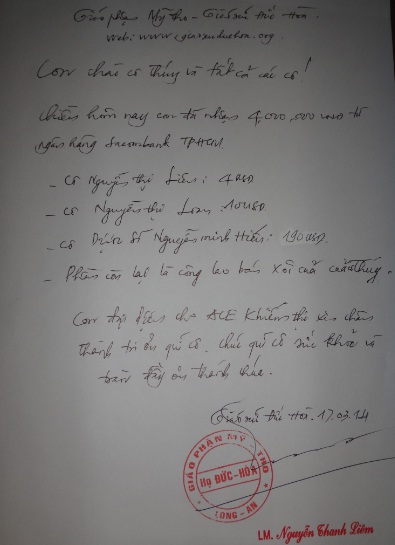 Giáo phận Mỹ Tho - Giáo xứ Đức Hòa.
Web: www.giaoxuduchoa.org.
Con chào cô Thúy và tất cả các cô!
Chiều hôm nay con đã nhận 4,000,000 VND từ
ngân hàng Sacombank TPHCM.
- Cô Nguyễn thị Liên:
- Cô Nguyễn thị Loan: 10USD.
- Cô Dược Sĩ Nguyễn minh Hiếu: 190USD.
- Phần còn lại là công lao bán xôi của
Con đại diện cho ACE Khiếm thị xin chân
thành tri ân quí cô, chúc quí cô sức khỏe và
tràn đầy ơn thánh Chúa.
Giáo xứ Đức Hòa. 17.03.14
GIÁO PHẬN MỸ THO
HỌ ĐỨC-HÒA
LONG-AN
LM. Nguyễn Thanh Liêm